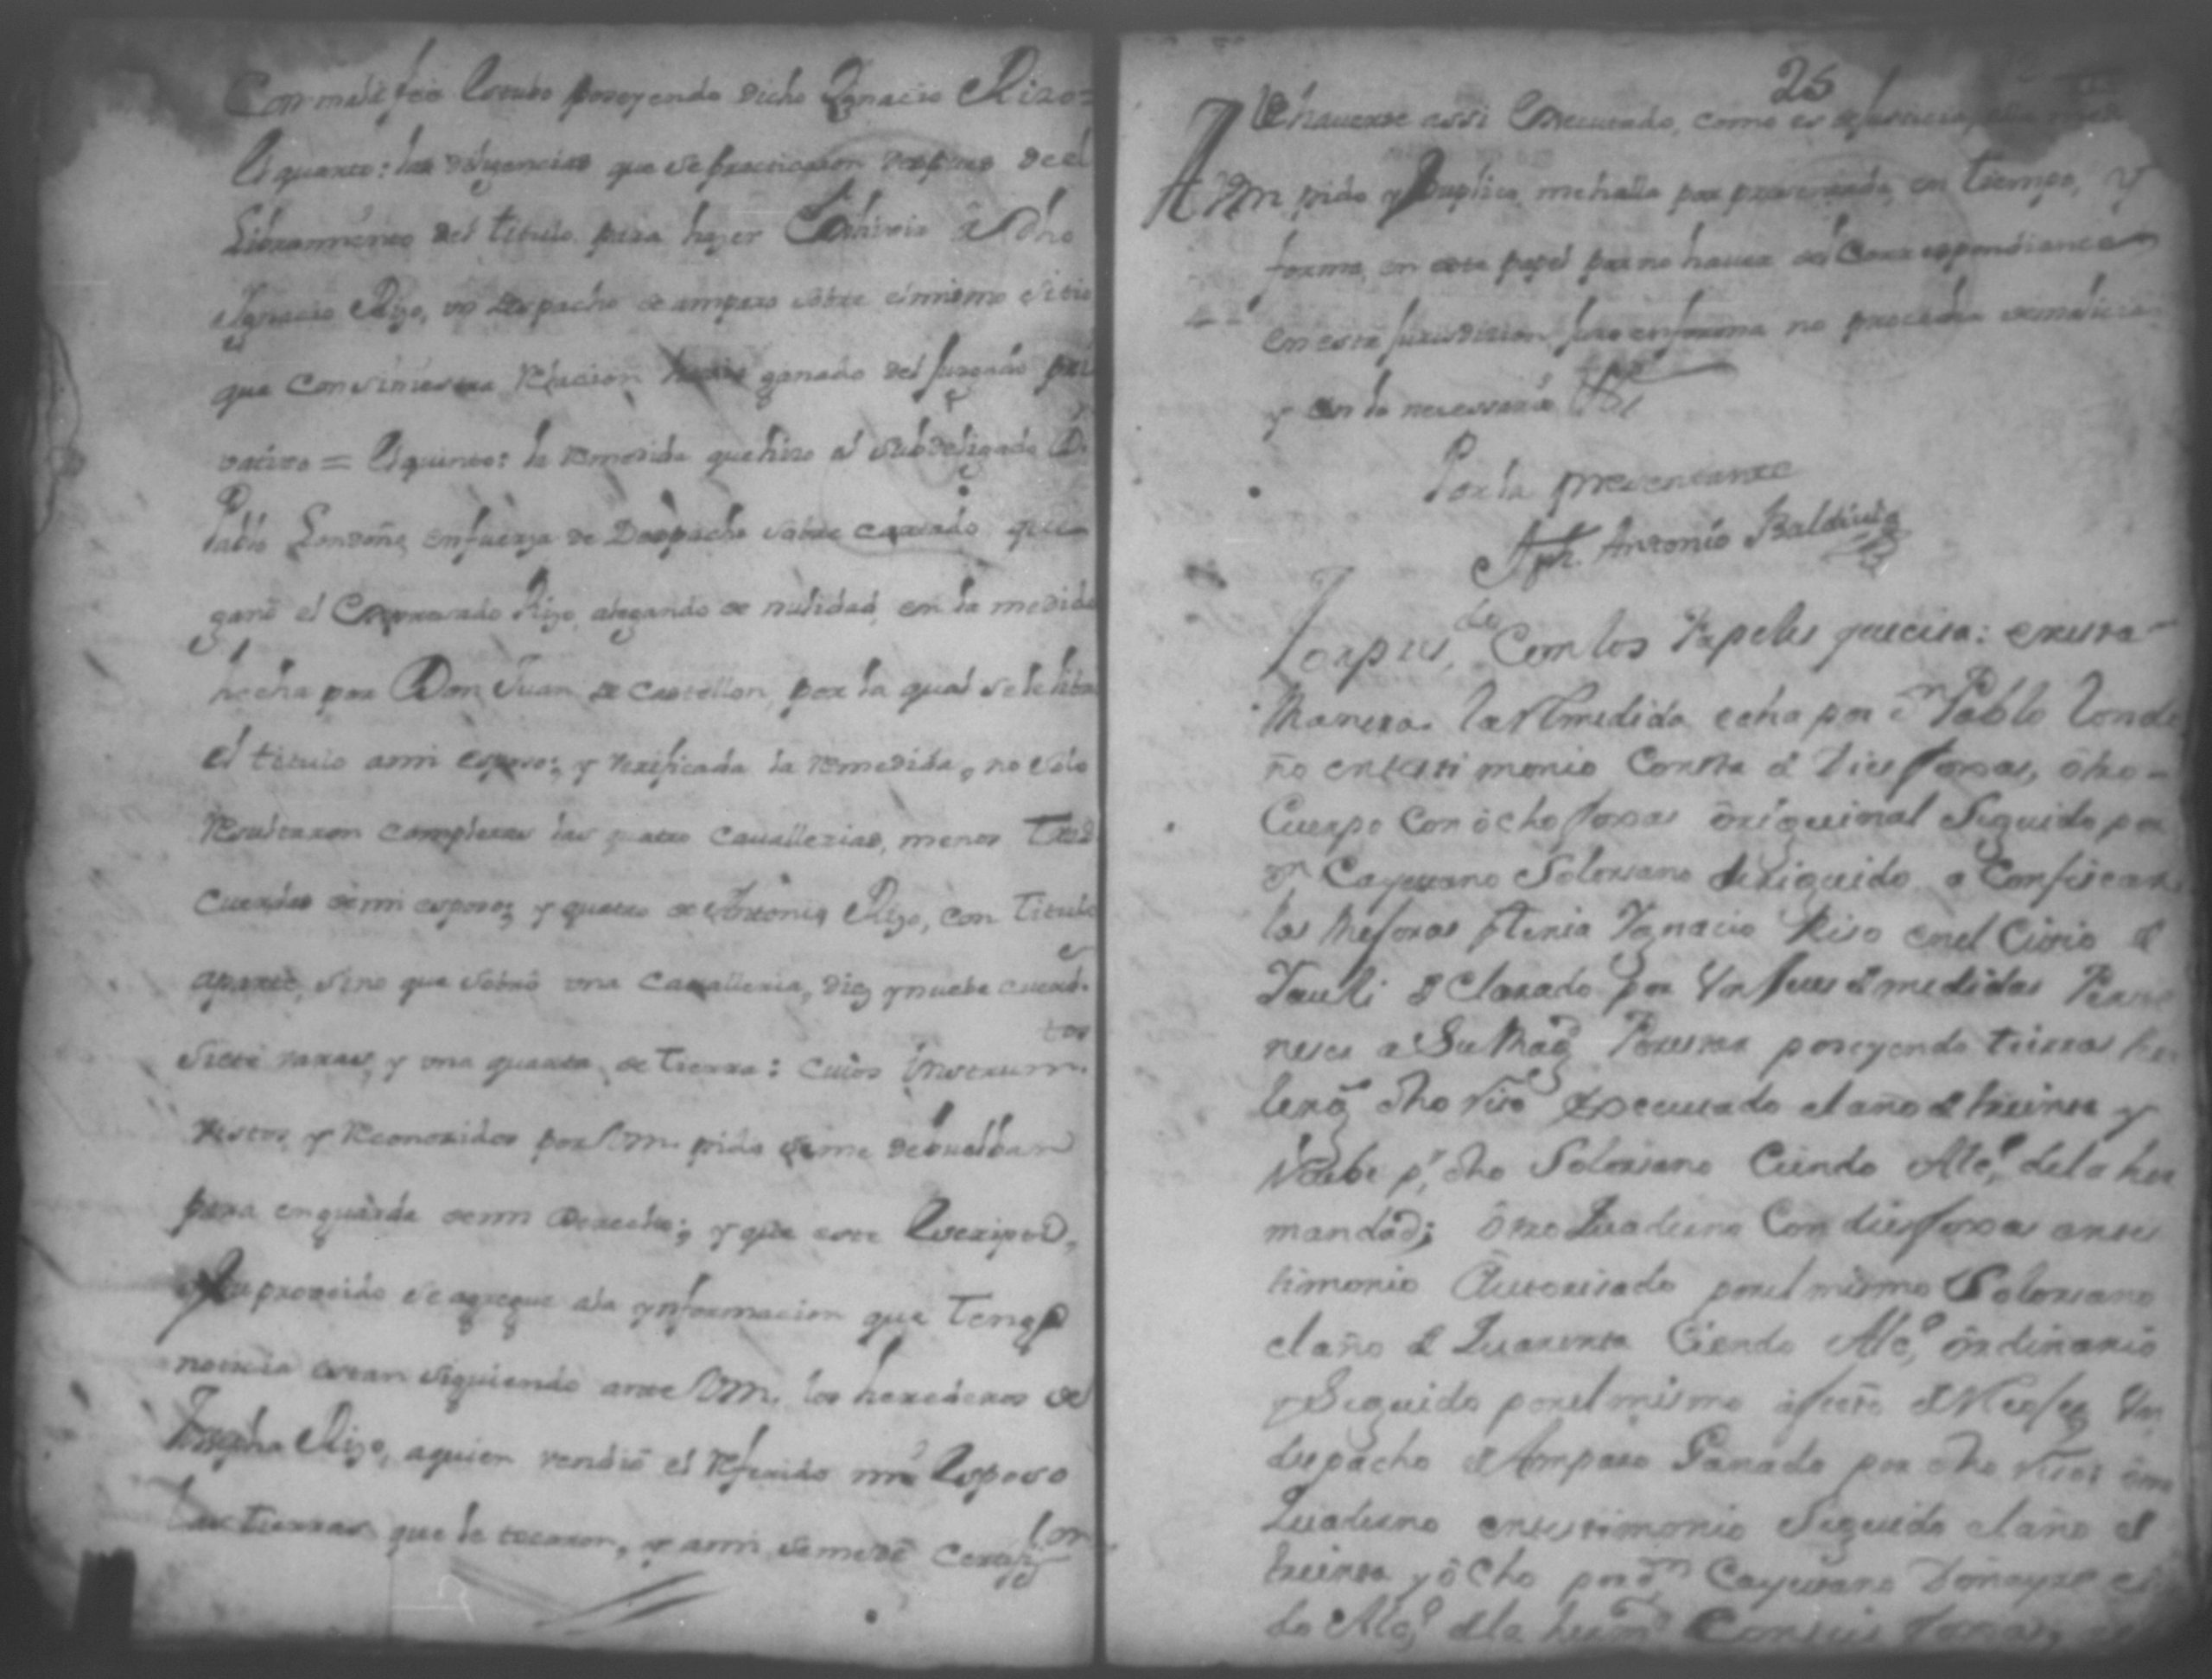 Con mala feé estubo poseyendo dicho Ygnacio Rizo=
El quarto: las diligencias que se practicaron despues de el
Libramiento del titulo para hazer Exhivir â dho
Ygnacio Rizo, un Despacho de amparo sobre el mismo sitio
que con siniestra Relacion havia ganado del Jusgado pri
vativo = El quinto: la remedida que hizo el Subdelegado D.
Pablo Londoño, en fuerza de Despacho sobre cartado que
ganó el Expresado Rizo, alegando de nulidad, en la medida
hecha por Don Juan de Castellon, por la qual se le libró
el titulo a mi esposo; y verificada la remedida, no solo
Resultaron completas las quatro Cavallerias, menos Tres
Cuerdas de mi esposo; y quatro de Antonia Rizo, con Titulo
aparte, sino que sobró una Cavalleria, diez y nuebe cuerd.s
siete varas, y una quarta de Tierra: cuios Instrum.tos
Vistos, y Reconozidos por Vm. pido se me debuelban
para en guarda de mi Derecho; y que este Escripto,
y su proveido se agregue a la ynformacion que Tengo
noticia estan siguiendo ante Vm. los herederos de
Josepha Rizo, a quien vendió el Referido mi Esposo
las tierras que le tocaron, y a mi se me dé Certifi
con
25
de haverse assi Executado, como es de Justicia,
A Vm. pido y Suplico, me halla por presentada, en tiempo, y
forma, en este papel por no haver del Correspondiente
en esta Jurisdizion, juro en forma no proceder de malicia
y en lo necessario &
Por la presentante
Jph. Antonio Baldivia
Corpus, Con los Papeles que cita: en esta
Manera. la Remedida echa por Dn Pablo Londo
ño en testimonio Consta de Dies foxas, ôtro
Cuerpo Con ôcho foxas ôriguinal Seguido por
Dn Cayetano Solorsano deriguido a Confiscar
las Mejoras q tenia Ygnacio Riso en el Citio de
Yauli declarado por Vn Jues de medidas Perte
neser a Su Mag.d Por estar poseyendo tierras
dho Riso Execuitado el año de treinta y
Nuebe p.r dho Solorsano Ciendo Alc.e de la her
mandad; ôtro Quaderno Con dies foxas en tes
timonio Autorisado por el mismo Solorsano
el año de Quarenta Ciendo Alc.e ôrdinario
y Seguido por el mismo
despacho de Amparo Ganado por dho Riso: ôtro
Quaderno en testimonio Seguido el año de
treinta y ôcho por Dn Cayetano Donayre
do Alc.e de la herm.d Con seis foxas,